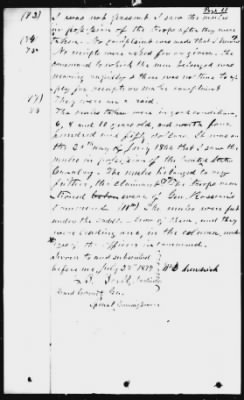 Page 11
I was not present. I saw the mules
in possession of the troops after they were
taken. No complaint was made that I know
No receipts were asked for or given. The
command to which the men belonged was
moving rapidly & there was no time to ap
ply for receipts or make complaint
They were on a raid.
The mules taken were in good condition
6, 8 and 10 years old, and worth
hundred and fifty dollars. It was on
the 20th day of July 1864 that I saw the
mules in possession of the United States
Cavalry. The mules belonged to my
father, the claimant. The troops men
tioned were of Gen. Rousseau's
command. The mules were put
under the saddle - two of them, and they
were leading one, in the column, under
eyes of the officers in command.
Sworn to and subscribed
before me, July 23rd 1877
Special Commissioner